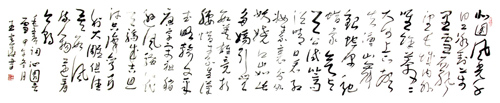 北国风光千
里冰封万里
雪飘望长城内外
惟余莽莽
大河上下顿
失滔滔山舞
银蛇原驰
蜡象欲与天
公试比高
须晴日看红
装素裹分外
妖娆江山如此
多娇引无
数英雄竞折
腰惜秦皇汉武
略输文采
唐宗宋祖稍
逊风骚一代
天骄成吉思
汗只识弯弓
射大雕俱往
矣数风
流人物还看
今朝
毛泽东词沁园春
雪